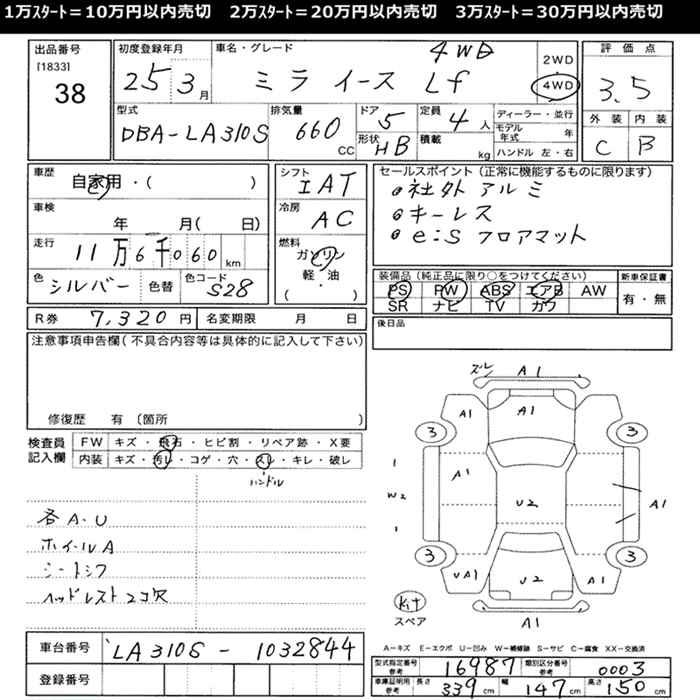 1万スタート=10万円以内売切 2万スタート=20万円以内売切 3万スタート=30万円以内売切
出品番号
[1833]
38
初度登録年月
25 3月
車名・グレード
ミラ イース Lf 4WD
2WD
4WD
評価点
3.5
外装 内装
C B
型式
DBA-LA310S
排気量
660 CC
ドア
5
形状
HB
定員
4人
積載
kg
ディーラー・並行
モデル年式 年
ハンドル 左・右
車歴
自家用・( )
車検
年 月( 日)
走行
11万6千060 km
色
シルバー
色替
色コード
S28
シフト
IAT
冷房
AC
燃料
ガソリン
軽・油
( )
セールスポイント(正常に機能するものに限ります)
社外アルミ
キーレス
e:S フロアマット
装備品(純正品に限り○をつけてください)
PS PW ABS エアB AW
SR ナビ TV カワ
新車保証書
有・無
R券 7,320円
名変期限 月 日
後日品
注意事項申告欄(不具合内容等は具体的に記入して下さい)
修復歴 有 〔箇所 〕
検査員
記入欄
FW キズ・飛石・ヒビ割・リペア跡・X要
内装 キズ・汚レ・コゲ・穴・スレ・キレ・破レ
ハンドル
各A.U
ホイールA
シートシワ
ヘッドレスト2コ欠
ズレ A1
A1 A1 A1
3 3
A1
1
W2
1
U2
A1
3 3
UA1 U2 A1
Kit
スペア
A1
A-キズ E-エクボ U-凹み W-補修跡 S-サビ C-腐食 XX-交換済
車台番号
LA310S-1032844
登録番号
型式指定番号 参考 16987
類別区分番号 参考 0003
車庫証明用 参考 長さ 339cm 幅 147cm 高さ 150cm